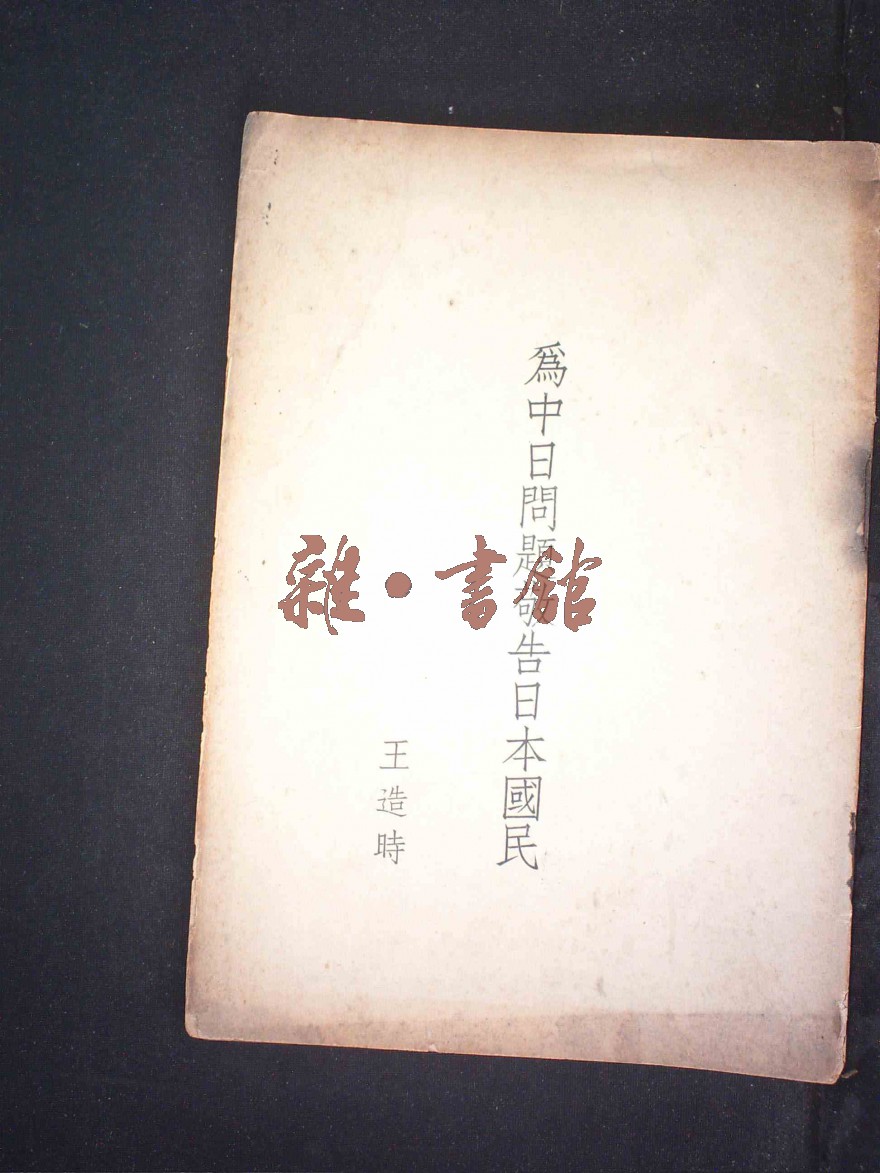 為中日問題敬告日本國民
王造時
雜·書館